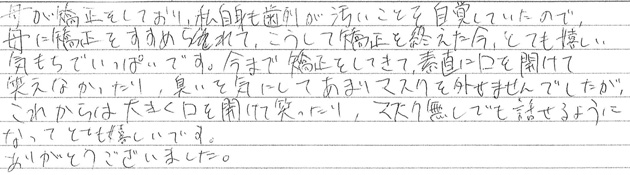 母が矯正をしており、私自身も歯列が汚いことを自覚していたので、
母に矯正をすすめられて、こうして矯正を終えた今、とても嬉しい
気もちでいっぱいです。今まで矯正をしてきて、素直に口を開けて
笑えなかったり、臭いを気にしてあまりマスクを外せませんでしたが、
これからは大きく口を開けて笑ったり、マスク無しでも話せるように
なってとても嬉しいです。
ありがとうございました。